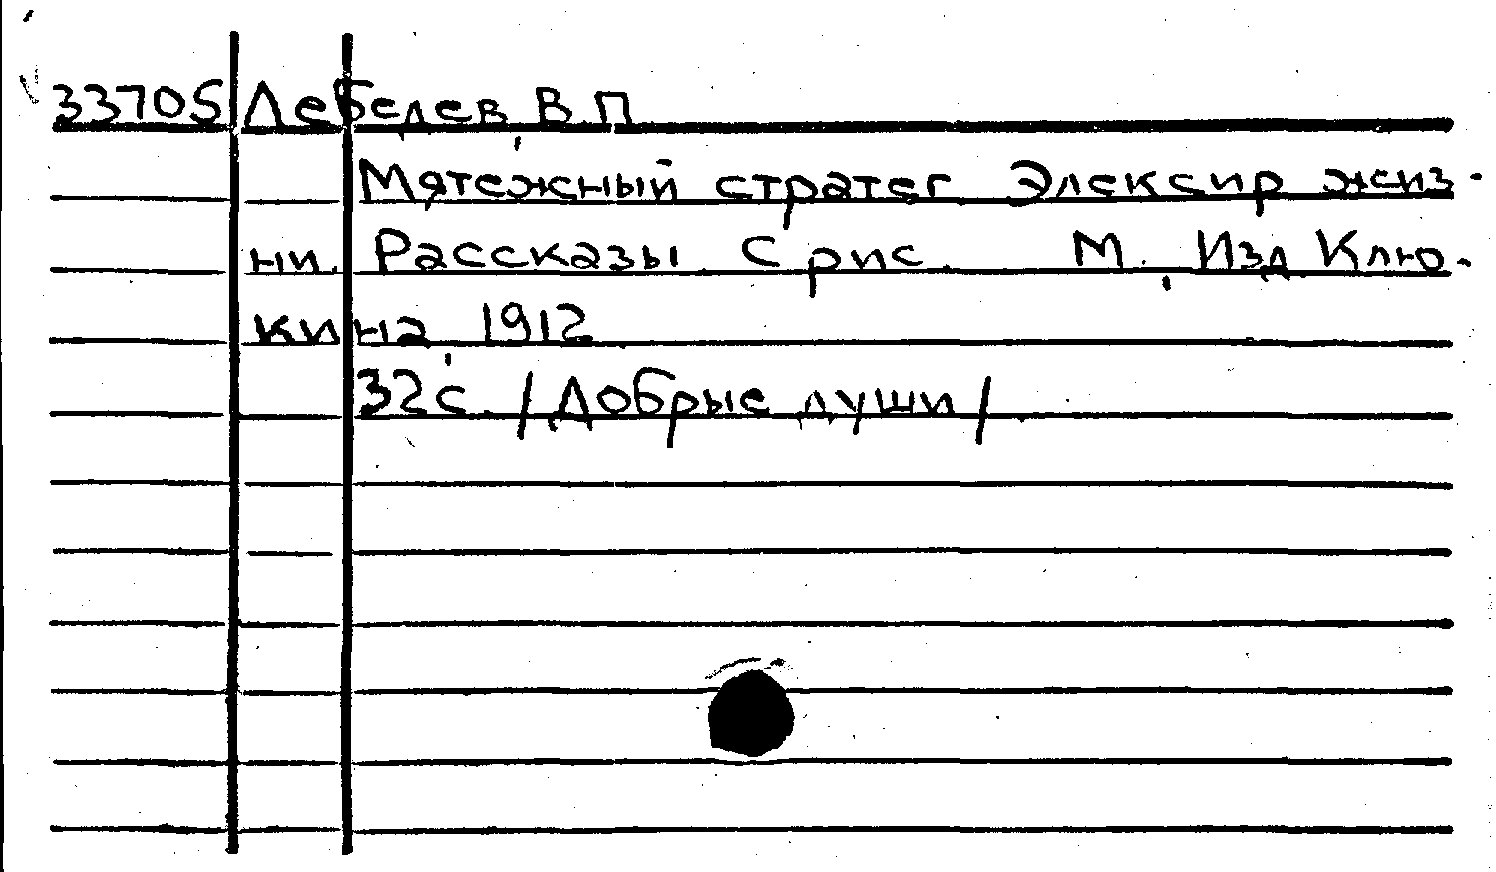 33705 Лебедев, В.П.
Мятежный стратег Элексир жиз-
ни. Рассказы С рис. М., Изд Клю-
кина, 1912
32с. /Добрые души/